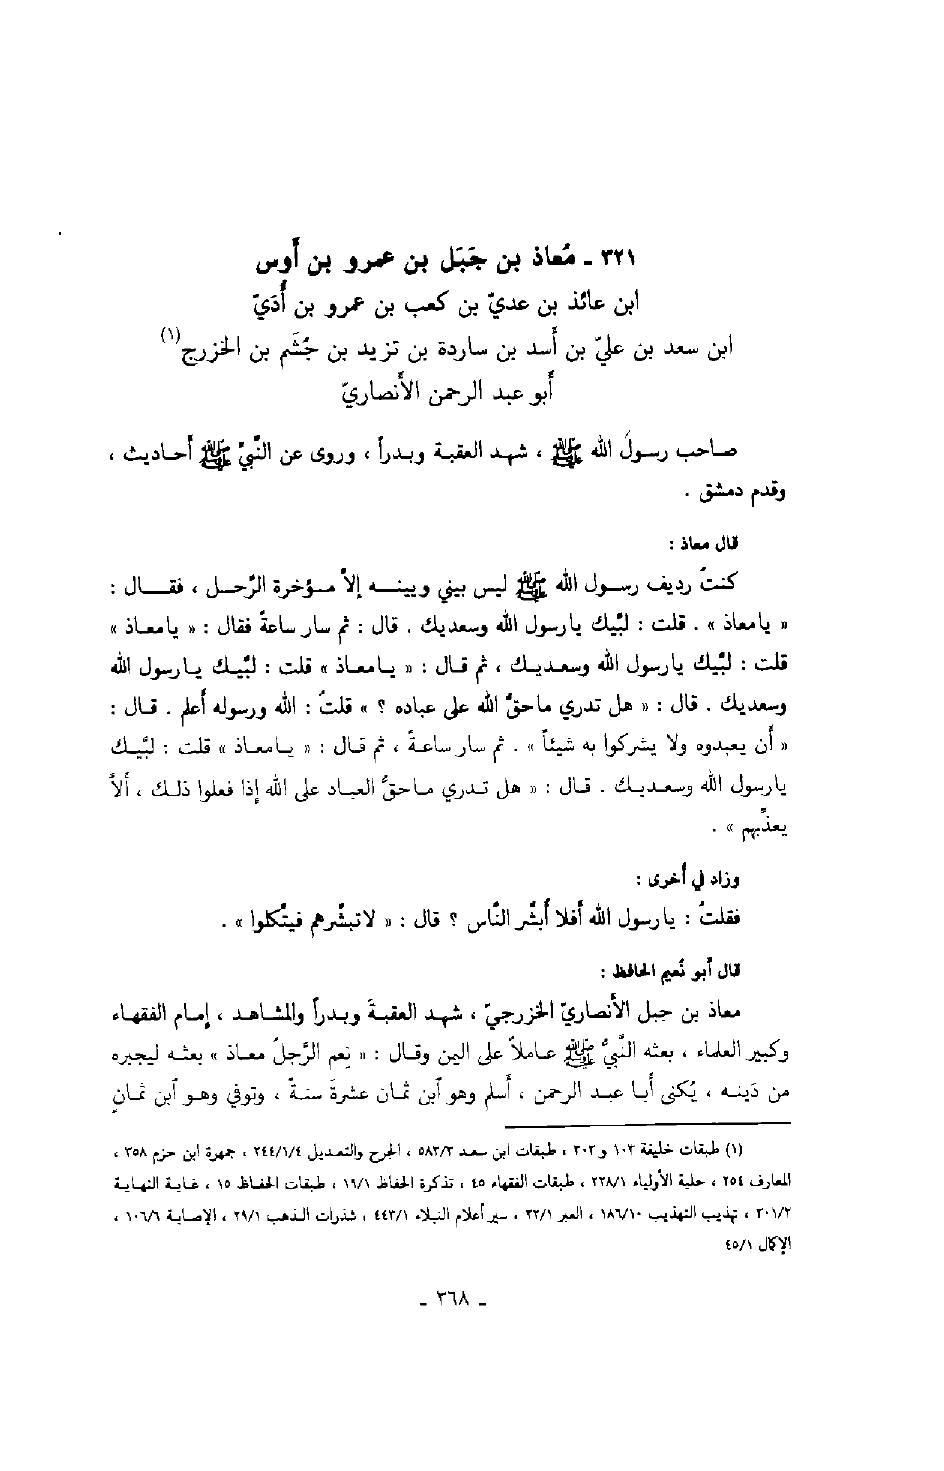 ٣٢١ ـ مُعاذ بن جَبَل بن عمرو بن أَوس
ابن عائذ بن عديّ بن كعب بن عمرو بن أُدَيّ
ابن سعد بن عليّ بن أَسد بن ساردة بن تزيد بن جُشَم بن الخزرج(١)
أَبو عبد الرحمن الأَنصاريّ
صاحب رسولُ الله ﷺ ، شهد العقبة وبدراً ، وروى عن النَّبيّ ﷺ أَحاديث ،
وقدم دمشق .
قال معاذ :
كنتُ رديف رسول الله ﷺ ليس بيني وبينه إلاّ مؤخرة الرَّحل ، فقال :
« يامعاذ » . قلت : لبَّيك يارسول الله وسعديك . قال : ثم سار ساعةً فقال : « يامعاذ »
قلت : لبَّيك يارسول الله وسعديك ، ثم قال : « يامعاذ » قلت : لبَّيك يارسول الله
وسعديك . قال : « هل تدري ماحقُّ الله على عباده ؟ » قلتُ : الله ورسوله أَعلم . قال :
« أَن يعبدوه ولا يشركوا به شيئاً » . ثم سار ساعةً ، ثم قال : « يامعاذ » قلت : لبَّيك
يارسول الله وسعديك . قال : « هل تدري ماحقُّ العباد على الله إذا فعلوا ذلك ، ألاَّ
يعذِّبهم » .
وزاد في أخرى :
فقلتُ : يارسول الله أَفلا أُبشّر النَّاس ؟ قال : « لاتبشّرهم فيتَّكلوا » .
قال أَبو نُعيم الحافظ :
معاذ بن جبل الأَنصاريّ الخزرجيّ ، شهد العقبةَ وبدراً والمشاهد ، إمام الفقهاء
وكبير العلماء ، بعثه النَّبيُّ ﷺ عاملاً على اليمن وقال : « نِعم الرَّجلُ معاذ » بعثه ليجيره
من دَينه ، يُكنى أَبا عبد الرحمن ، أَسلم وهو آبن ثمان عشرةَ سنةً ، وتوفي وهو آبن ثمانٍ
(١) طبقات خليفة ١٠٣ و٣٠٣ ، طبقات ابن سعد ٥٨٣/٣ ، الجرح والتعديل ٢٤٤/١/٤ ، جمهرة ابن حزم ٣٥٨ ،
المعارف ٢٥٤ ، حلية الأولياء ٢٢٨/١ ، طبقات الفقهاء ٤٥ ، تذكرة الحفاظ ١٩/١ ، طبقات الحفاظ ١٥ ، غاية النهاية
٣٠١/٢ ، تهذيب التهذيب ١٨٦/١٠ ، العبر ٢٢/١ ، سير أعلام النبلاء ٤٤٣/١ ، شذرات الذهب ٢٩/١ ، الإصابة ١٠٦/٦ ،
الإكمال ٤٥/١
ـ ٣٦٨ ـ